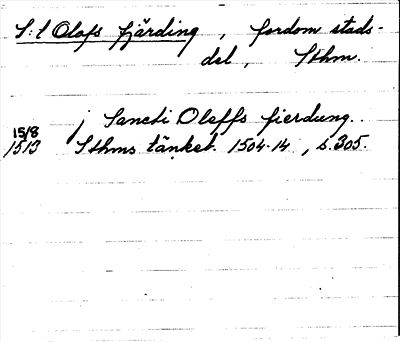 S:t Olofs fjärding, fordom stads-
del, Sthm.
j Sancti Oleffs fierdung.
15/8
1513 Sthms tänkeb. 1504-14, s. 305.